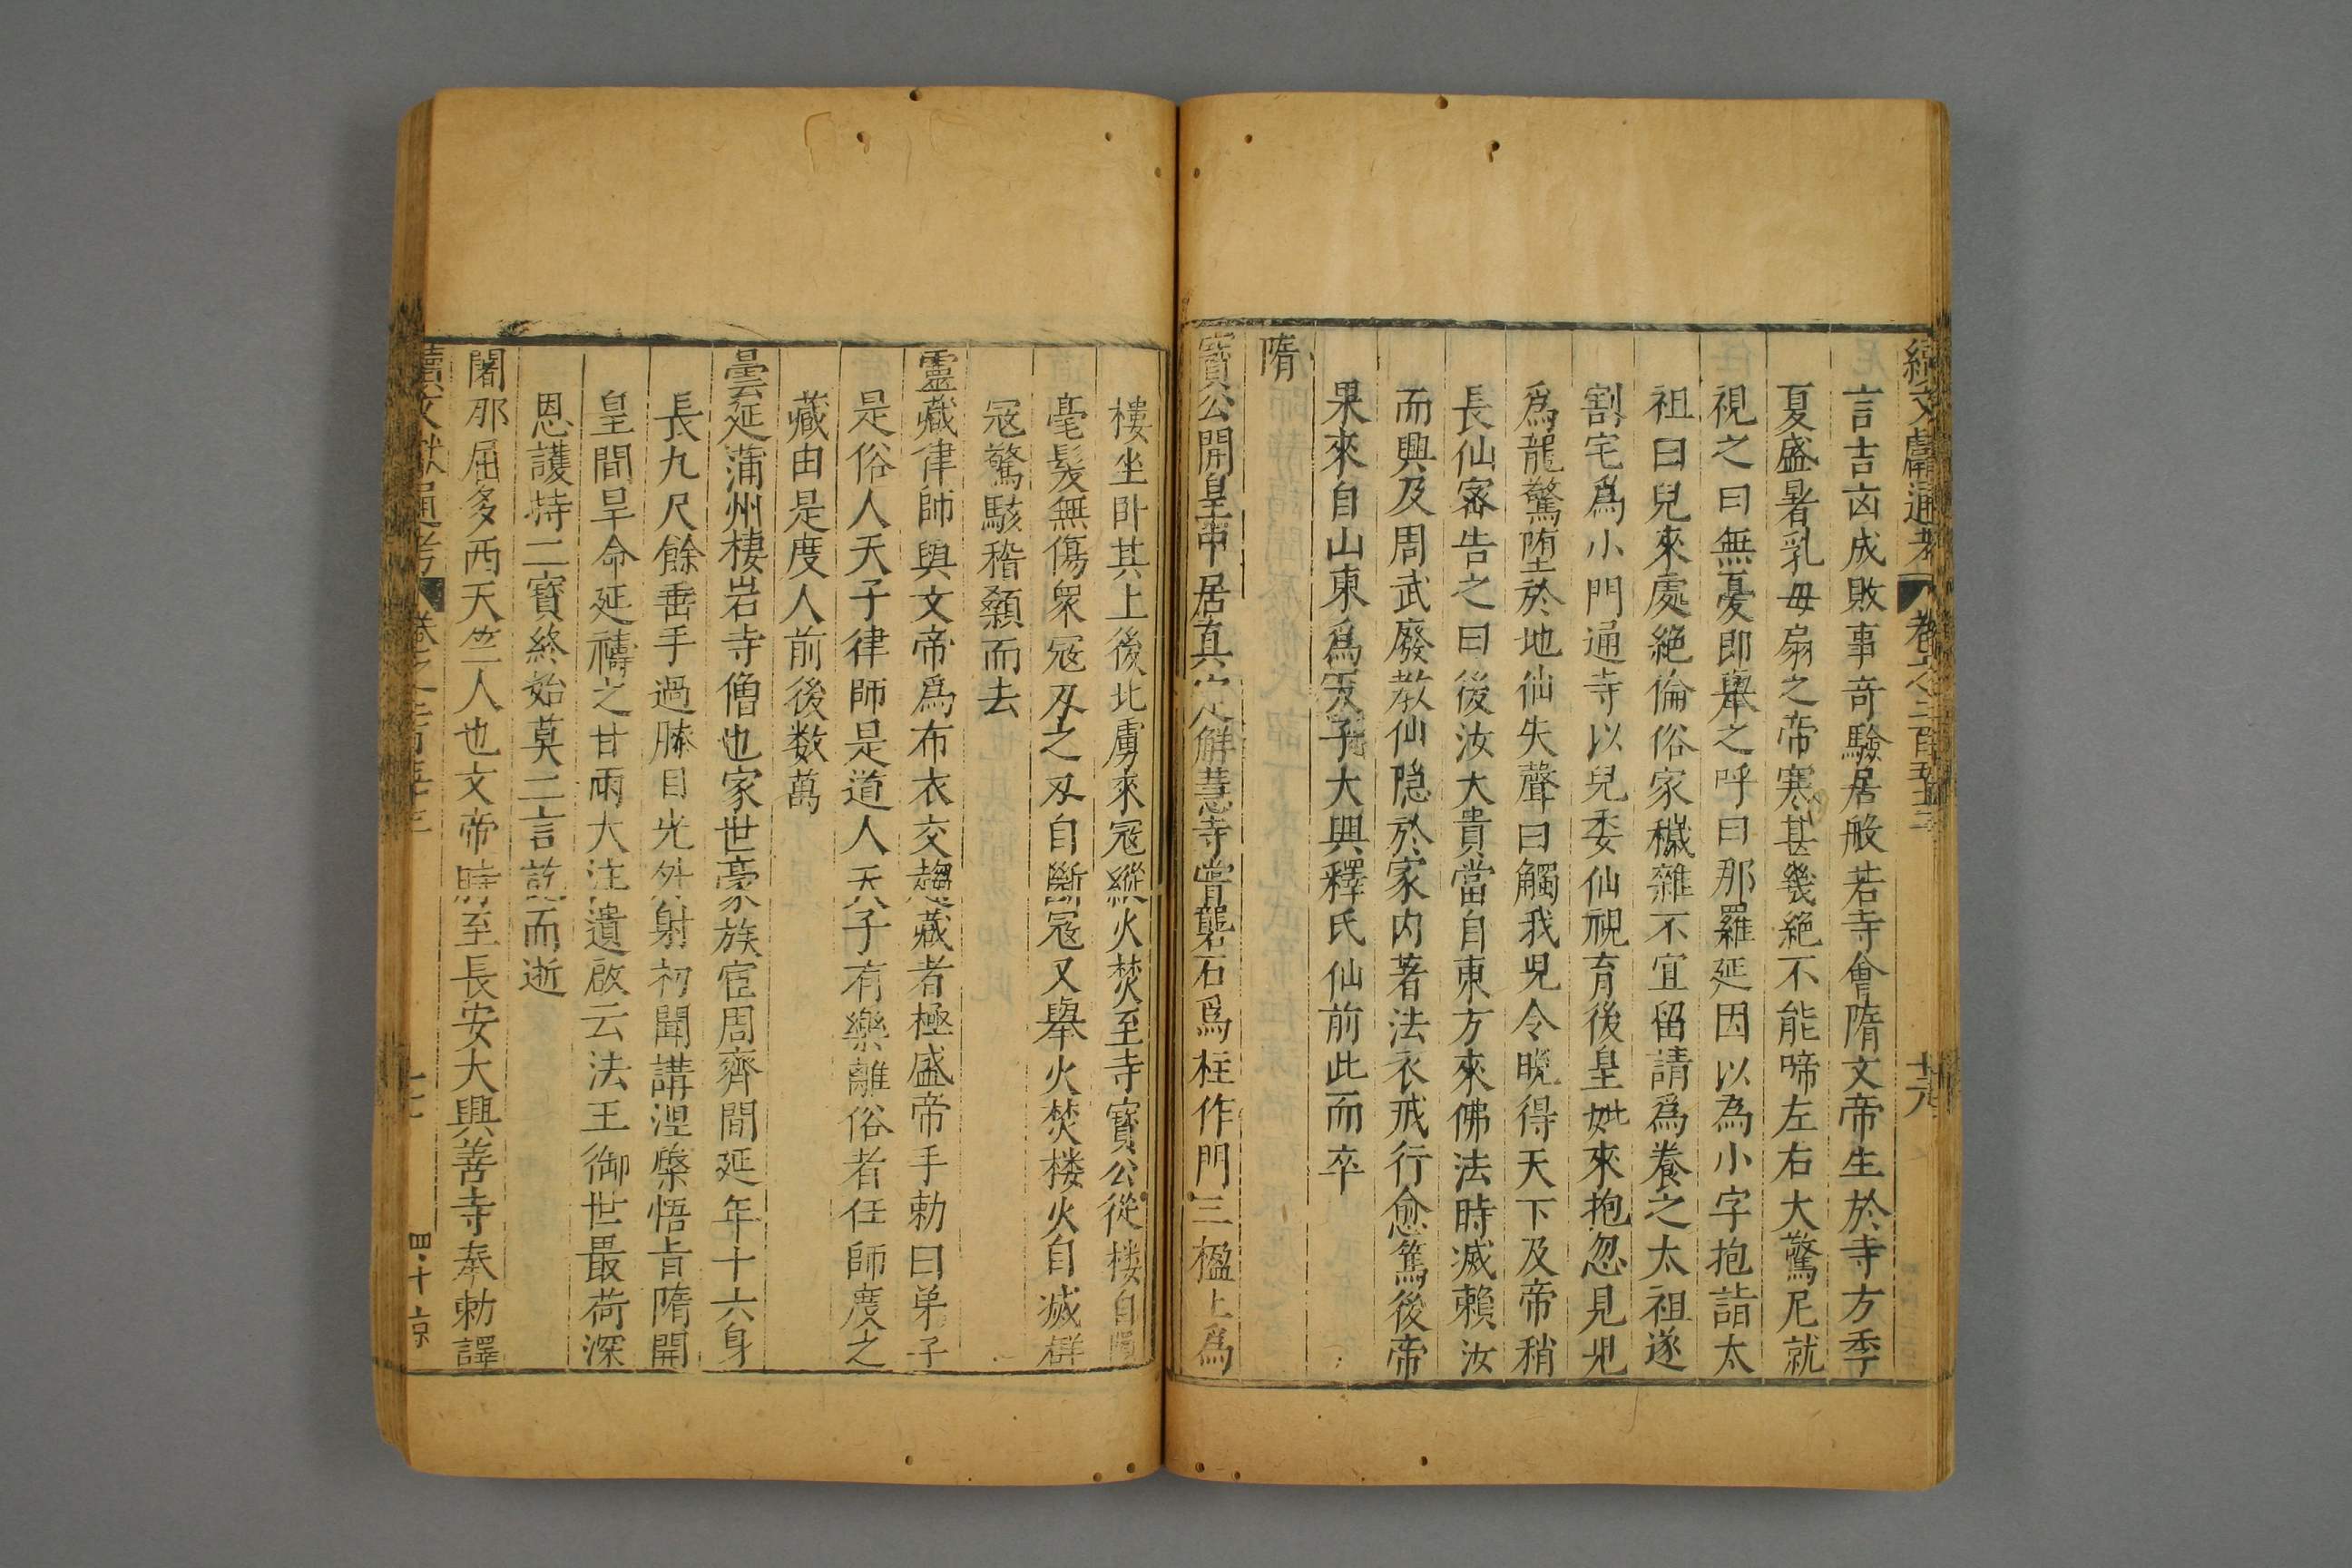 續文獻通考 卷之二百五十三 十六
言吉凶成敗事奇驗居般若寺會隋文帝生於寺方季
夏盛暑乳母扇之帝寒甚幾絕不能啼左右大驚尼就
視之曰無憂即舉之呼曰那羅延因以為小字抱詣太
祖曰兒來處絕倫俗家穢雜不宜留請爲養之太祖遂
割宅爲小門通寺以兒委仙視育後皇妣來抱忽見兒
爲龍驚堕於地仙失聲曰觸我兒令晚得天下及帝稍
長仙宻告之曰後汝大貴當自東方來佛法時滅賴汝
而興及周武廢教仙隐於家内著法衣戒行愈篤後帝
果來自山東爲天子大興釋氏仙前此而卒
隋
寳公開皇中居真定解慧寺嘗礱石爲柱作門三楹上爲
樓坐卧其上後北虜來冦縱火焚至寺寳公從楼自擲
毫髮無傷衆冦刄之刄自斷冦又舉火焚楼火自滅群
冦驚駭稽顙而去
靈藏律師與文帝爲布衣交趨藏者極盛帝手勅曰弟子
是俗人天子律師是道人天子有樂離俗者任師度之
藏由是度人前後数萬
曇延蒲州棲岩寺僧也家世豪族宦周齊間延年十六身
長九尺餘垂手過膝目光外射初聞講涅槃悟旨隋開
皇間旱命延禱之甘雨大注遺啟云法王御世最荷深
恩護持二寳終始莫二言訖而逝
闍那屈多西天竺人也文帝時至長安大興善寺奉勅譯
續文獻通考 卷之二百五十三 四十 京